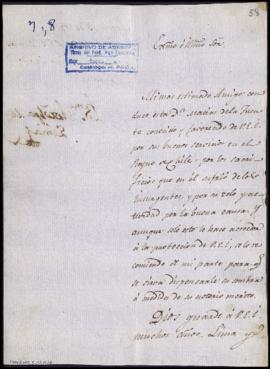 58
7,8
ARCHIVO DE
Exmo. Señor
Mi mas estimado Amigo: con
duce esta Dn. Matias de la Fuen
te conocido y favorecido de V.E.I.
por sus buenos servicios en el
Reyno de Chile, por los sacri
ficios que en el
Insurgentes, y por su zelo y ac
tividad por la buena causa. Y
aunque solo esto lo hace acreedor
á la proteccion de V.E.I., se lo re
comiendo de mi parte para q.
se sirva dispensarle su sombra
á medida de su notorio merito.
Dios guarde á V.E.I.
muchos años. Lima, y